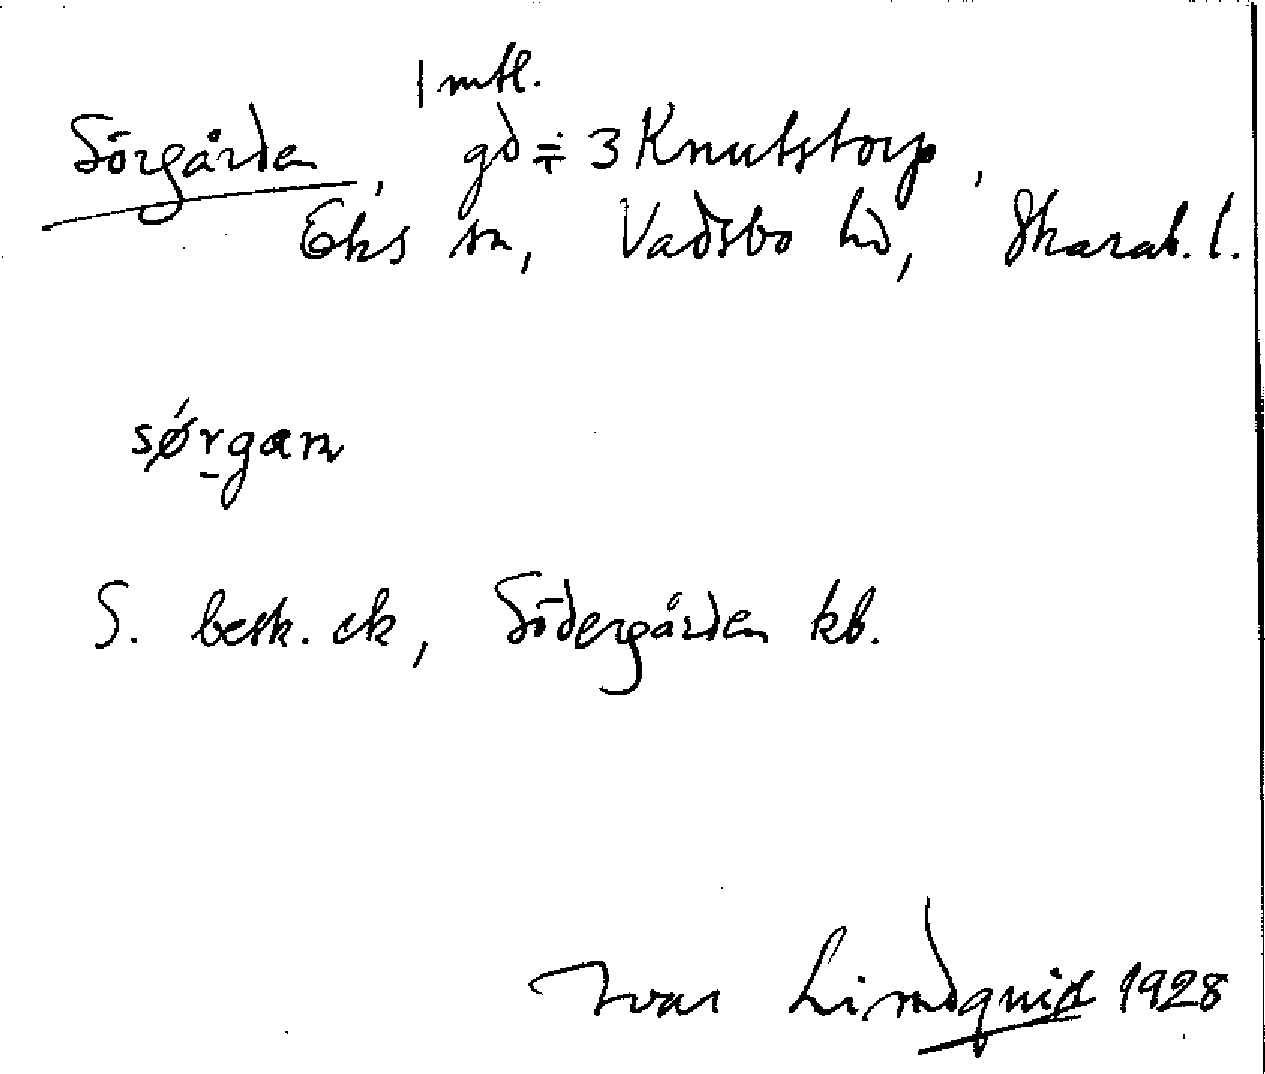 1 mtl.
Sörgården, gd ÷ 3 Knutstorp,
Eks sn, Vadsbo hd, Skarab. l.
sǿrgan
S. besk. ek, Södergården kb.
Ivar Lindquist 1928